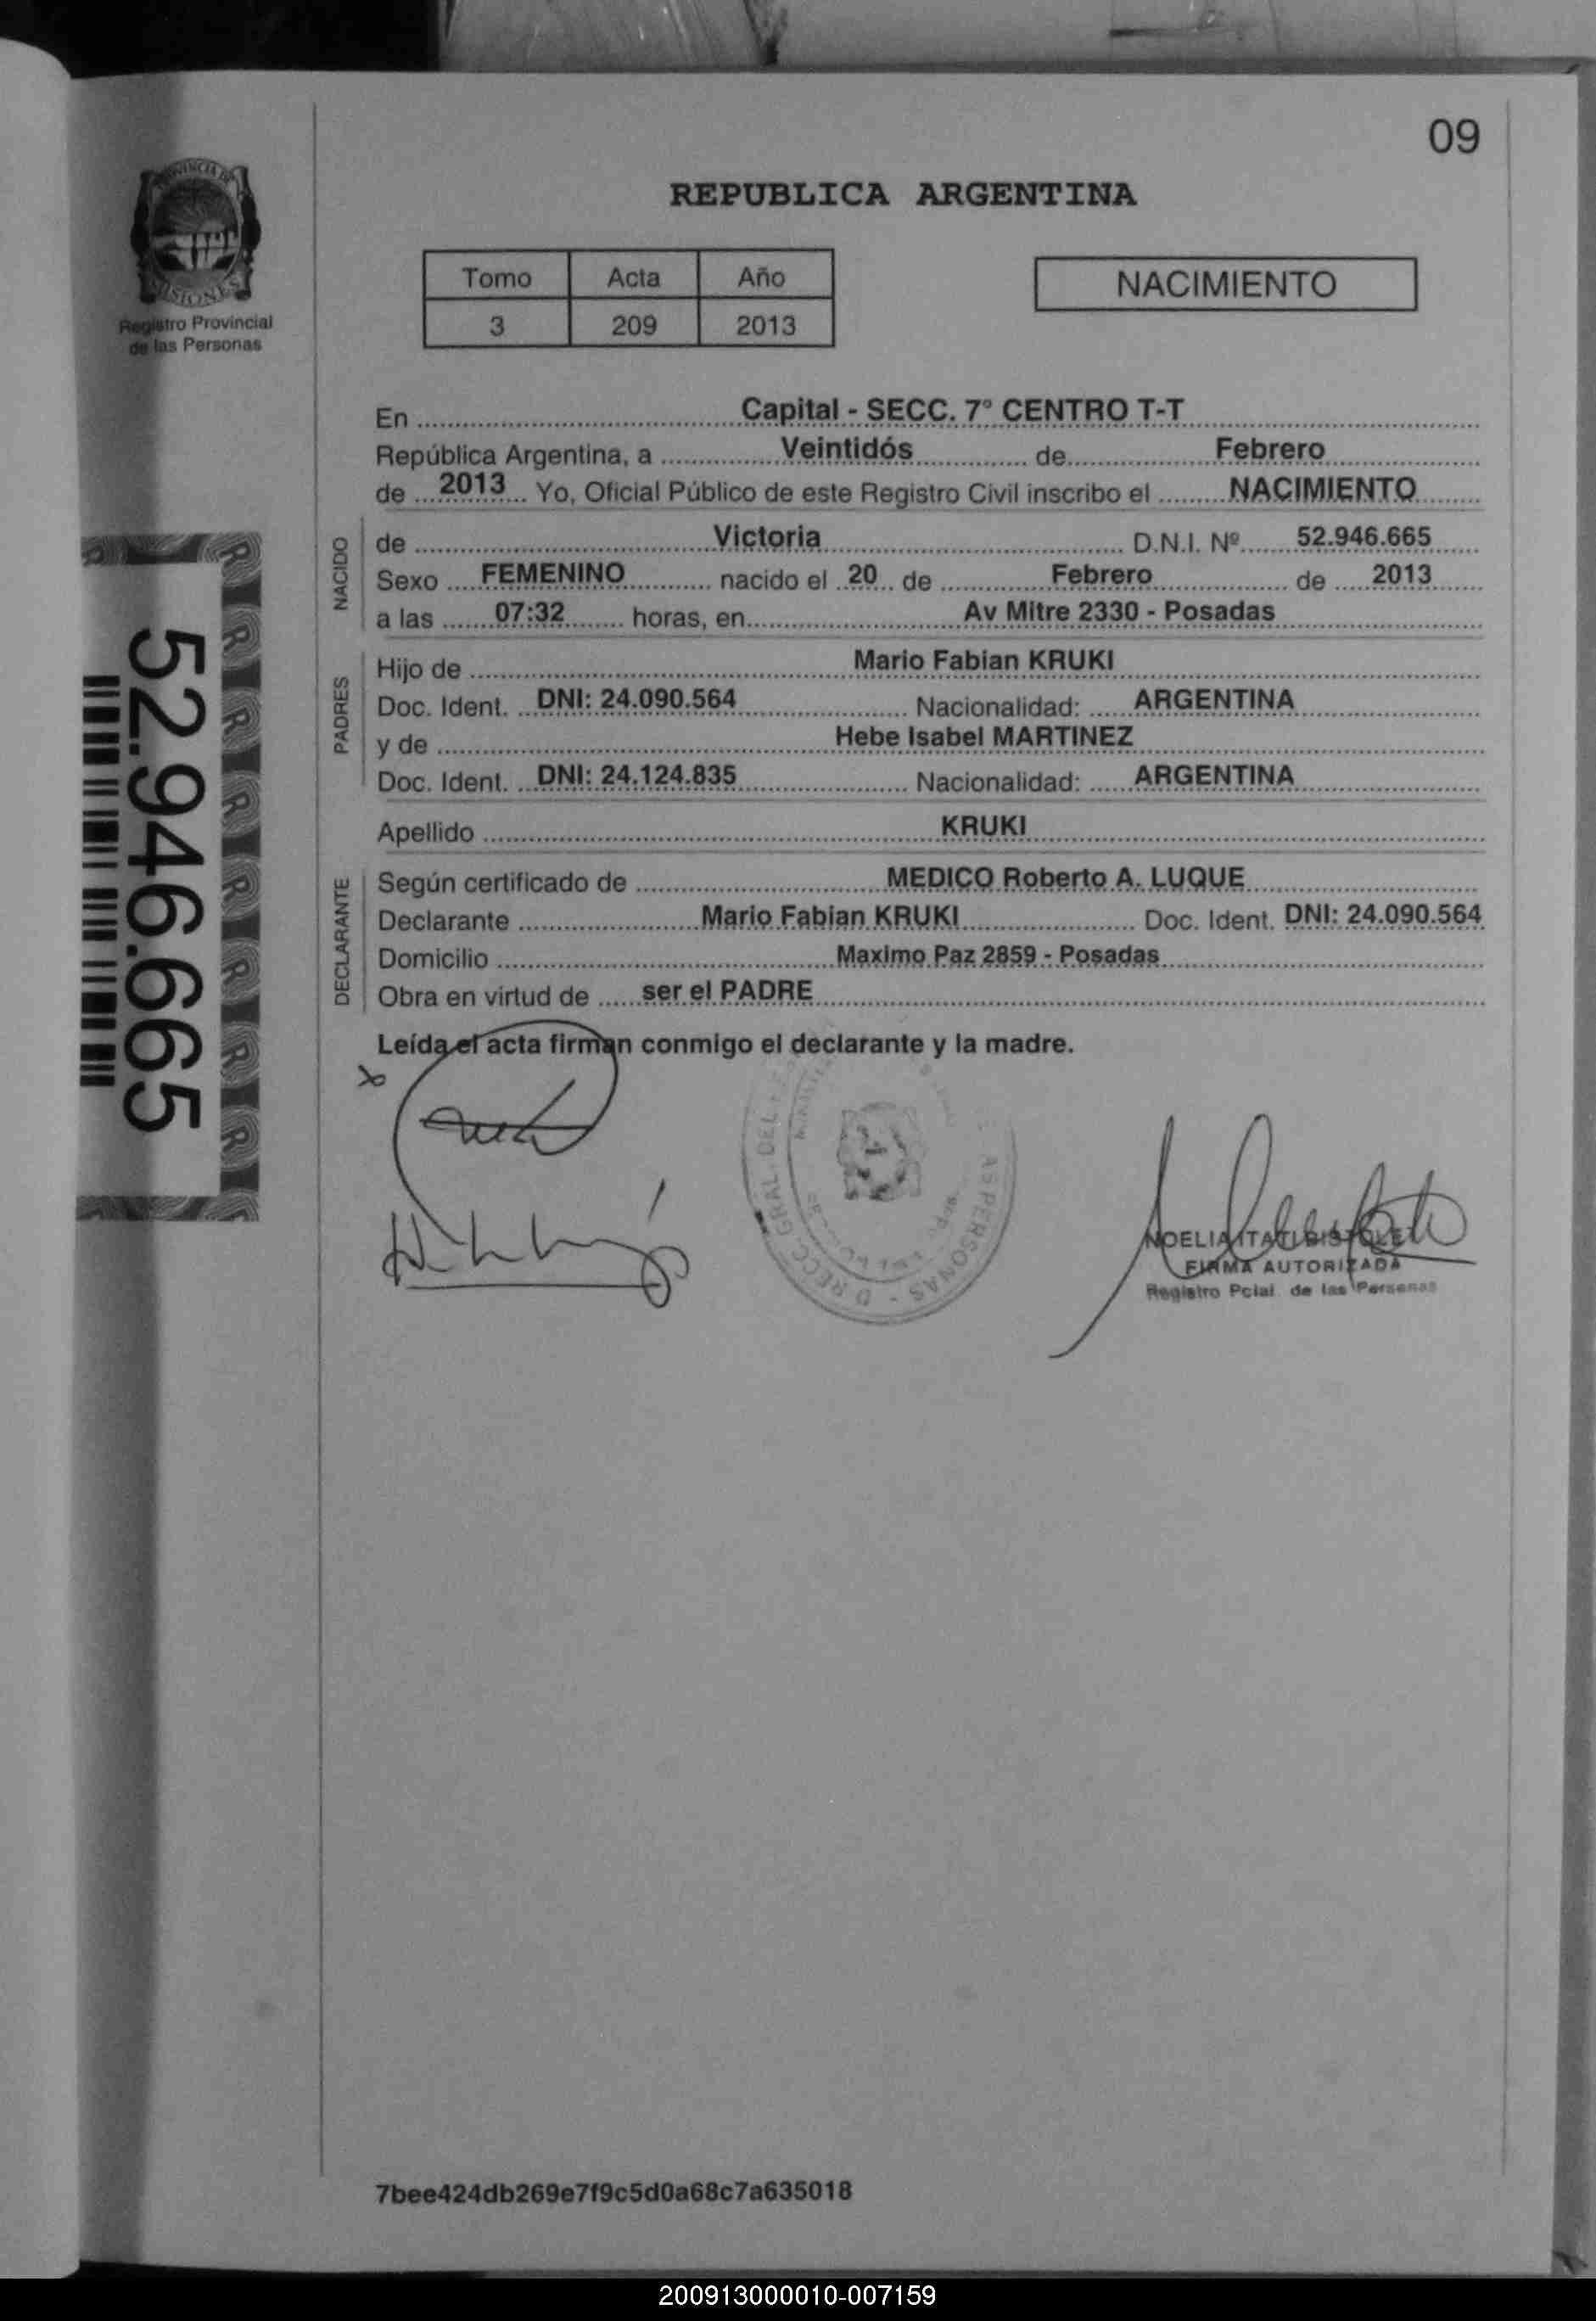 09
PROVINCIA DE
MISIONES
Registro Provincial
de las Personas
REPUBLICA ARGENTINA
Tomo Acta Año
3 209 2013
NACIMIENTO
En Capital - SECC. 7° CENTRO T-T
República Argentina, a Veintidós de Febrero
de 2013 Yo, Oficial Público de este Registro Civil inscribo el NACIMIENTO
NACIDO
de Victoria D.N.I. Nº 52.946.665
Sexo FEMENINO nacido el 20 de Febrero de 2013
a las 07:32 horas, en Av Mitre 2330 - Posadas
PADRES
Hijo de Mario Fabian KRUKI
Doc. Ident. DNI: 24.090.564 Nacionalidad: ARGENTINA
y de Hebe Isabel MARTINEZ
Doc. Ident. DNI: 24.124.835 Nacionalidad: ARGENTINA
Apellido KRUKI
DECLARANTE
Según certificado de MEDICO Roberto A. LUQUE
Declarante Mario Fabian KRUKI Doc. Ident. DNI: 24.090.564
Domicilio Maximo Paz 2859 - Posadas
Obra en virtud de ser el PADRE
Leída el acta firman conmigo el declarante y la madre.
52.946.665
NOELIA ITATI
FIRMA AUTORIZADA
Registro Pcial. de las Personas
7bee424db269e7f9c5d0a68c7a635018
200913000010-007159